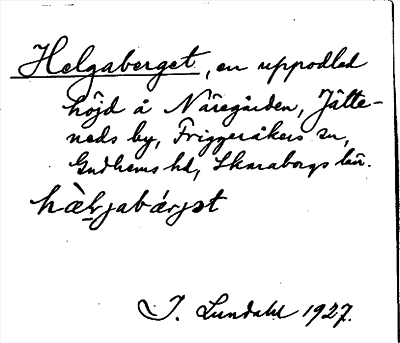 Helgaberget, en uppodlad
höjd å Näregården, Jätte-
neds by, Friggeråkers sn,
Gudhems hd, Skaraborgs län.
hàljabárjət
J. Lundahl 1927.